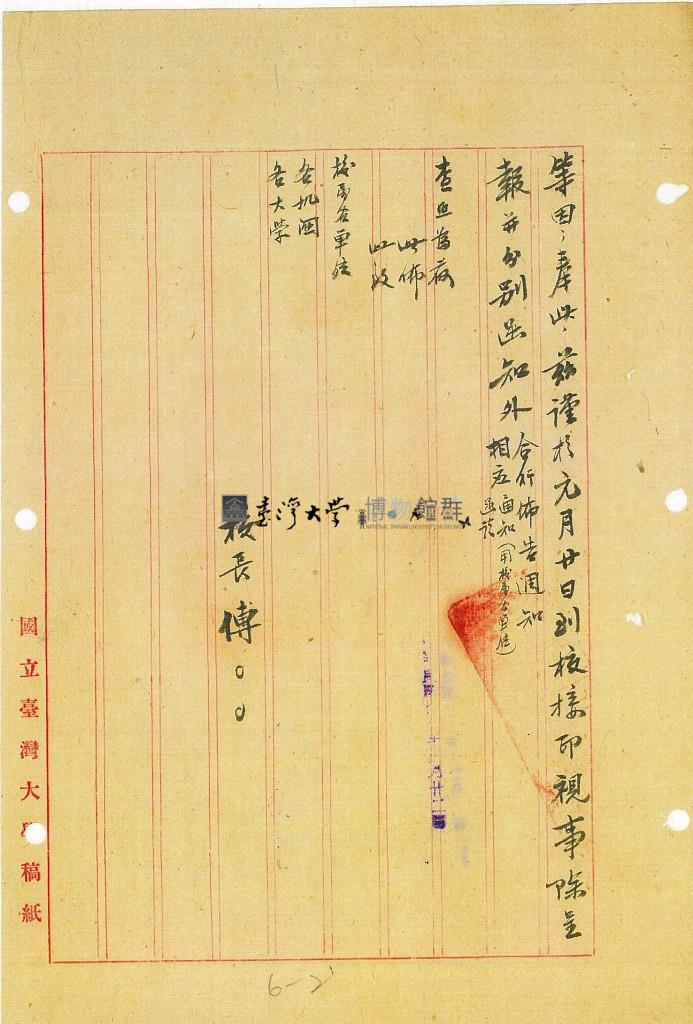 等因，奉此，茲謹於元月廿日到校接印視事除呈
報并分別函知外
合行佈告週知
相应函知（用校屬各單位）
函請
查照為荷
此佈
此致
校屬各單位
各机関
各大學
校長傅〇〇
國立臺灣大學稿紙
臺灣大學
博物館群
NATIONAL TAIWAN UNIVERSITY MUSEUMS
6-2